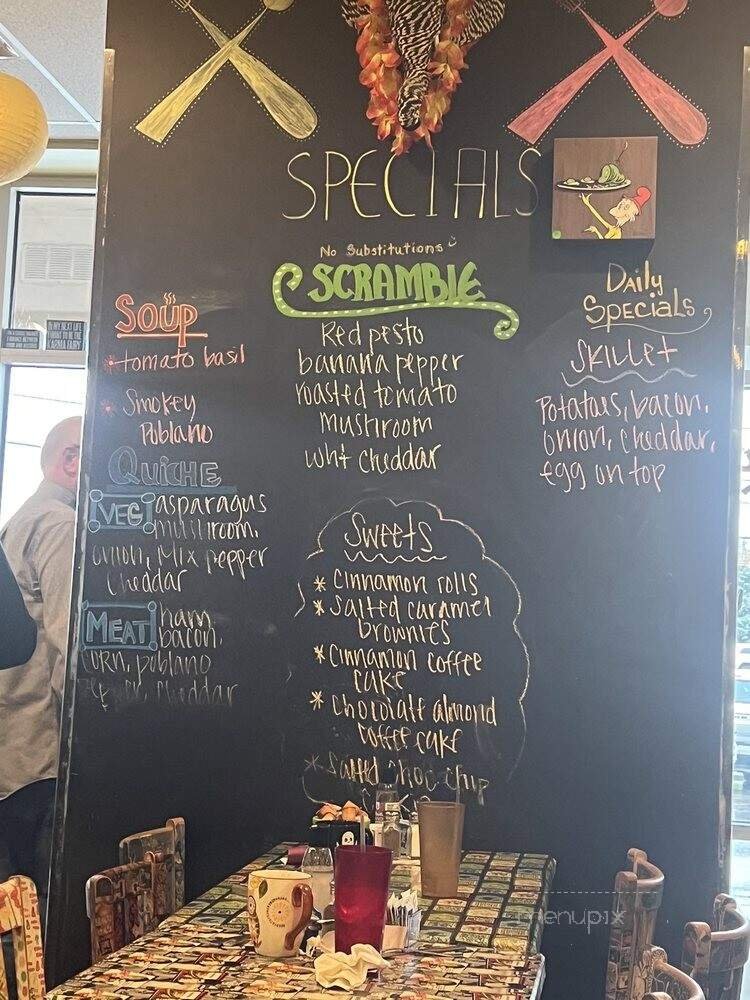 SPECIALS
No Substitutions
SCRAMBLE
Red pesto
banana pepper
roasted tomato
mushroom
wht cheddar
Soup
*tomato basil
* Smokey
Poblano
QUICHE
VEG asparagus
mushroom,
onion, mix pepper
cheddar
MEAT ham
bacon,
corn, poblano
pepper, cheddar
Sweets
* cinnamon rolls
* salted caramel
brownies
* cinnamon coffee
cake
* chocolate almond
coffee cake
* salted choc chip
Daily
Specials
Skillet
Potatoes, bacon,
onion, cheddar,
egg on top
menupix